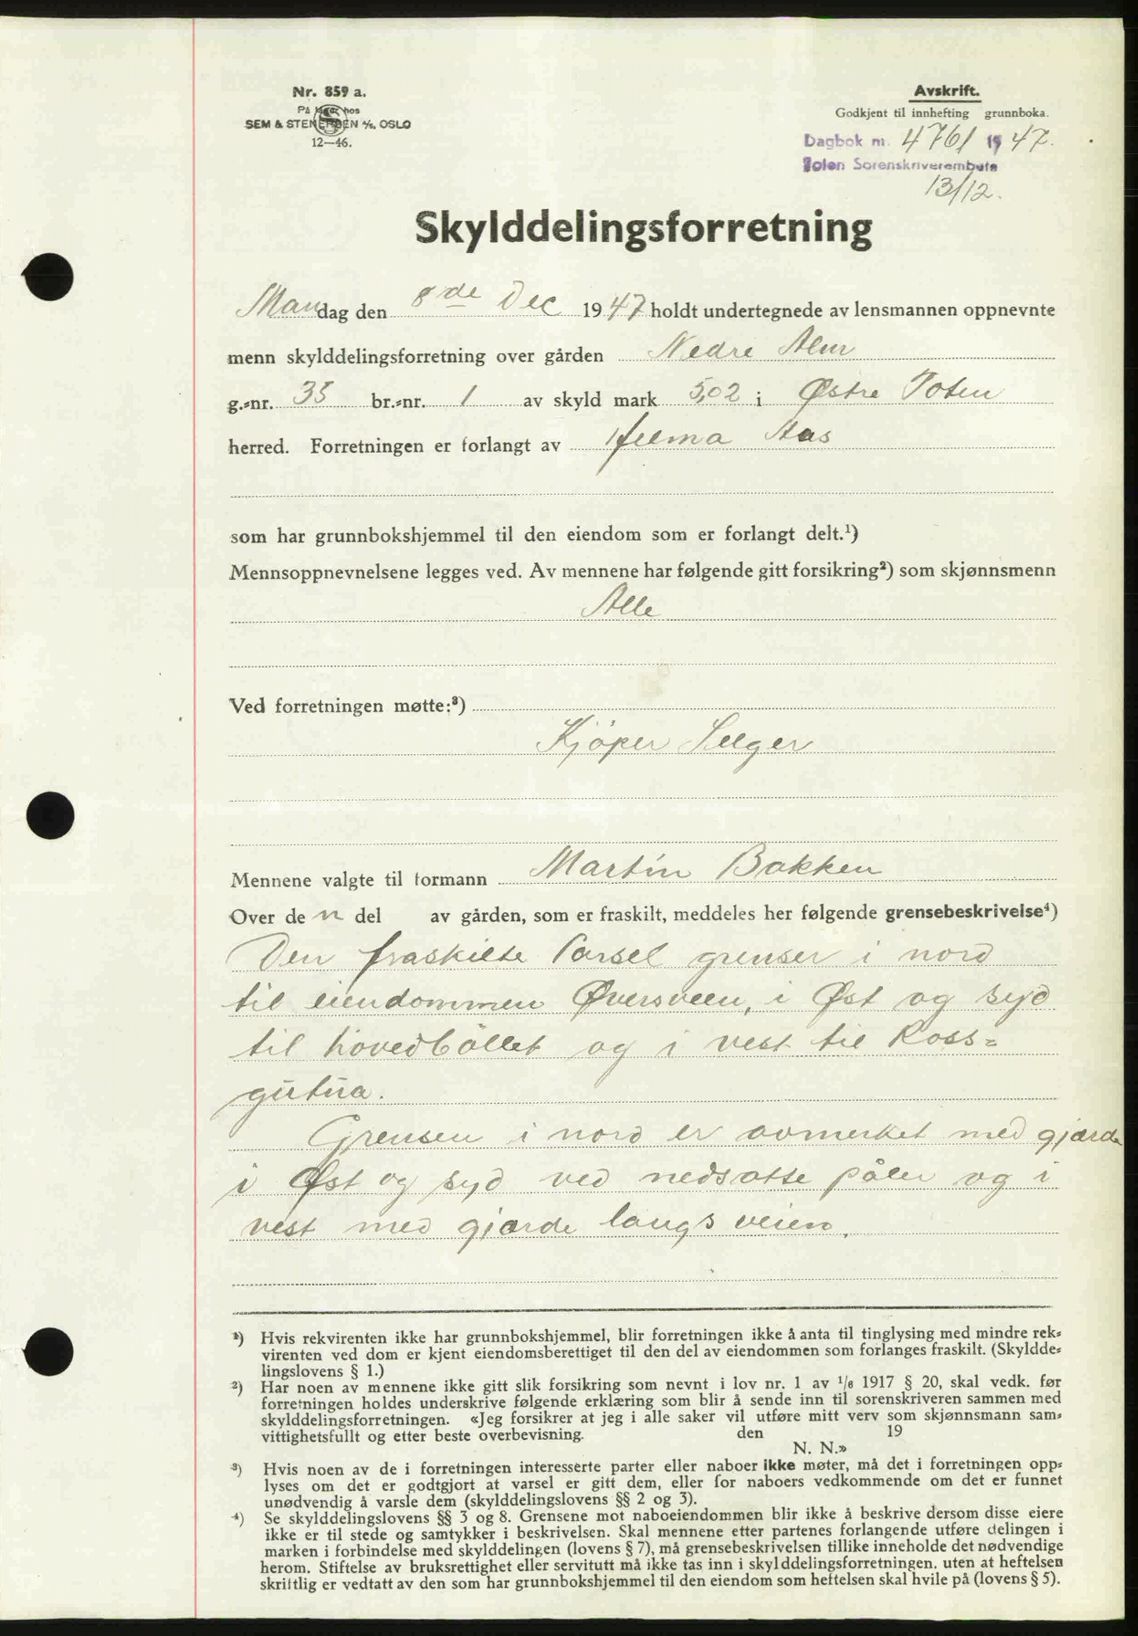 Nr. 859 a.
På lager hos
SEM & STENERSEN A/S, OSLO
12—46.
Avskrift.
Godkjent til innhefting grunnboka.
Dagbok nr. 4761 1947.
Toten Sorenskriverembete
13/12.
Skylddelingsforretning
Mandag den 8de Dec 1947 holdt undertegnede av lensmannen oppnevnte
menn skylddelingsforretning over gården Nedre Alm
g.-nr. 35 br.-nr. 1 av skyld mark 5,02 i Østre Toten
herred. Forretningen er forlangt av Helma Aas
som har grunnbokshjemmel til den eiendom som er forlangt delt.¹)
Mennsoppnevnelsene legges ved. Av mennene har følgende gitt forsikring²) som skjønnsmenn
Alle
Ved forretningen møtte:³)
Kjöper Selger
Mennene valgte til formann Martin Bakken
Over de n del av gården, som er fraskilt, meddeles her følgende grensebeskrivelse⁴)
Den fraskilte Parsel grenser i nord
til eiendommen Øversveen, i Øst og syd
til hovedböllet og i vest til Ross=
gutua.
Grensen i nord er avmerket med gjærde
i Øst og syd ved nedsatte påler og i
vest med gjærde langs veien.
¹) Hvis rekvirenten ikke har grunnbokshjemmel, blir forretningen ikke å anta til tinglysing med mindre rek-
virenten ved dom er kjent eiendomsberettiget til den del av eiendommen som forlanges fraskilt. (Skyldde-
lingslovens § 1.)
²) Har noen av mennene ikke gitt slik forsikring som nevnt i lov nr. 1 av ¹/₆ 1917 § 20, skal vedk. før
forretningen holdes underskrive følgende erklæring som blir å sende inn til sorenskriveren sammen med
skylddelingsforretningen. «Jeg forsikrer at jeg i alle saker vil utføre mitt verv som skjønnsmann sam-
vittighetsfullt og etter beste overbevisning. den 19
N. N.»
³) Hvis noen av de i forretningen interesserte parter eller naboer ikke møter, må det i forretningen opp-
lyses om det er godtgjort at varsel er gitt dem, eller for naboers vedkommende om det er funnet
unødvendig å varsle dem (skylddelingslovens §§ 2 og 3).
⁴) Se skylddelingslovens §§ 3 og 8. Grensene mot naboeiendommen blir ikke å beskrive dersom disse eiere
ikke er til stede og samtykker i beskrivelsen. Skal mennene etter partenes forlangende utføre delingen i
marken i forbindelse med skylddelingen (lovens § 7), må grensebeskrivelsen tillike inneholde det nødvendige
herom. Stiftelse av bruksrettighet eller servitutt må ikke tas inn i skylddelingsforretningen, uten at heftelsen
skriftlig er vedtatt av den som har grunnbokshjemmel til den eiendom som heftelsen skal hvile på (lovens § 5).